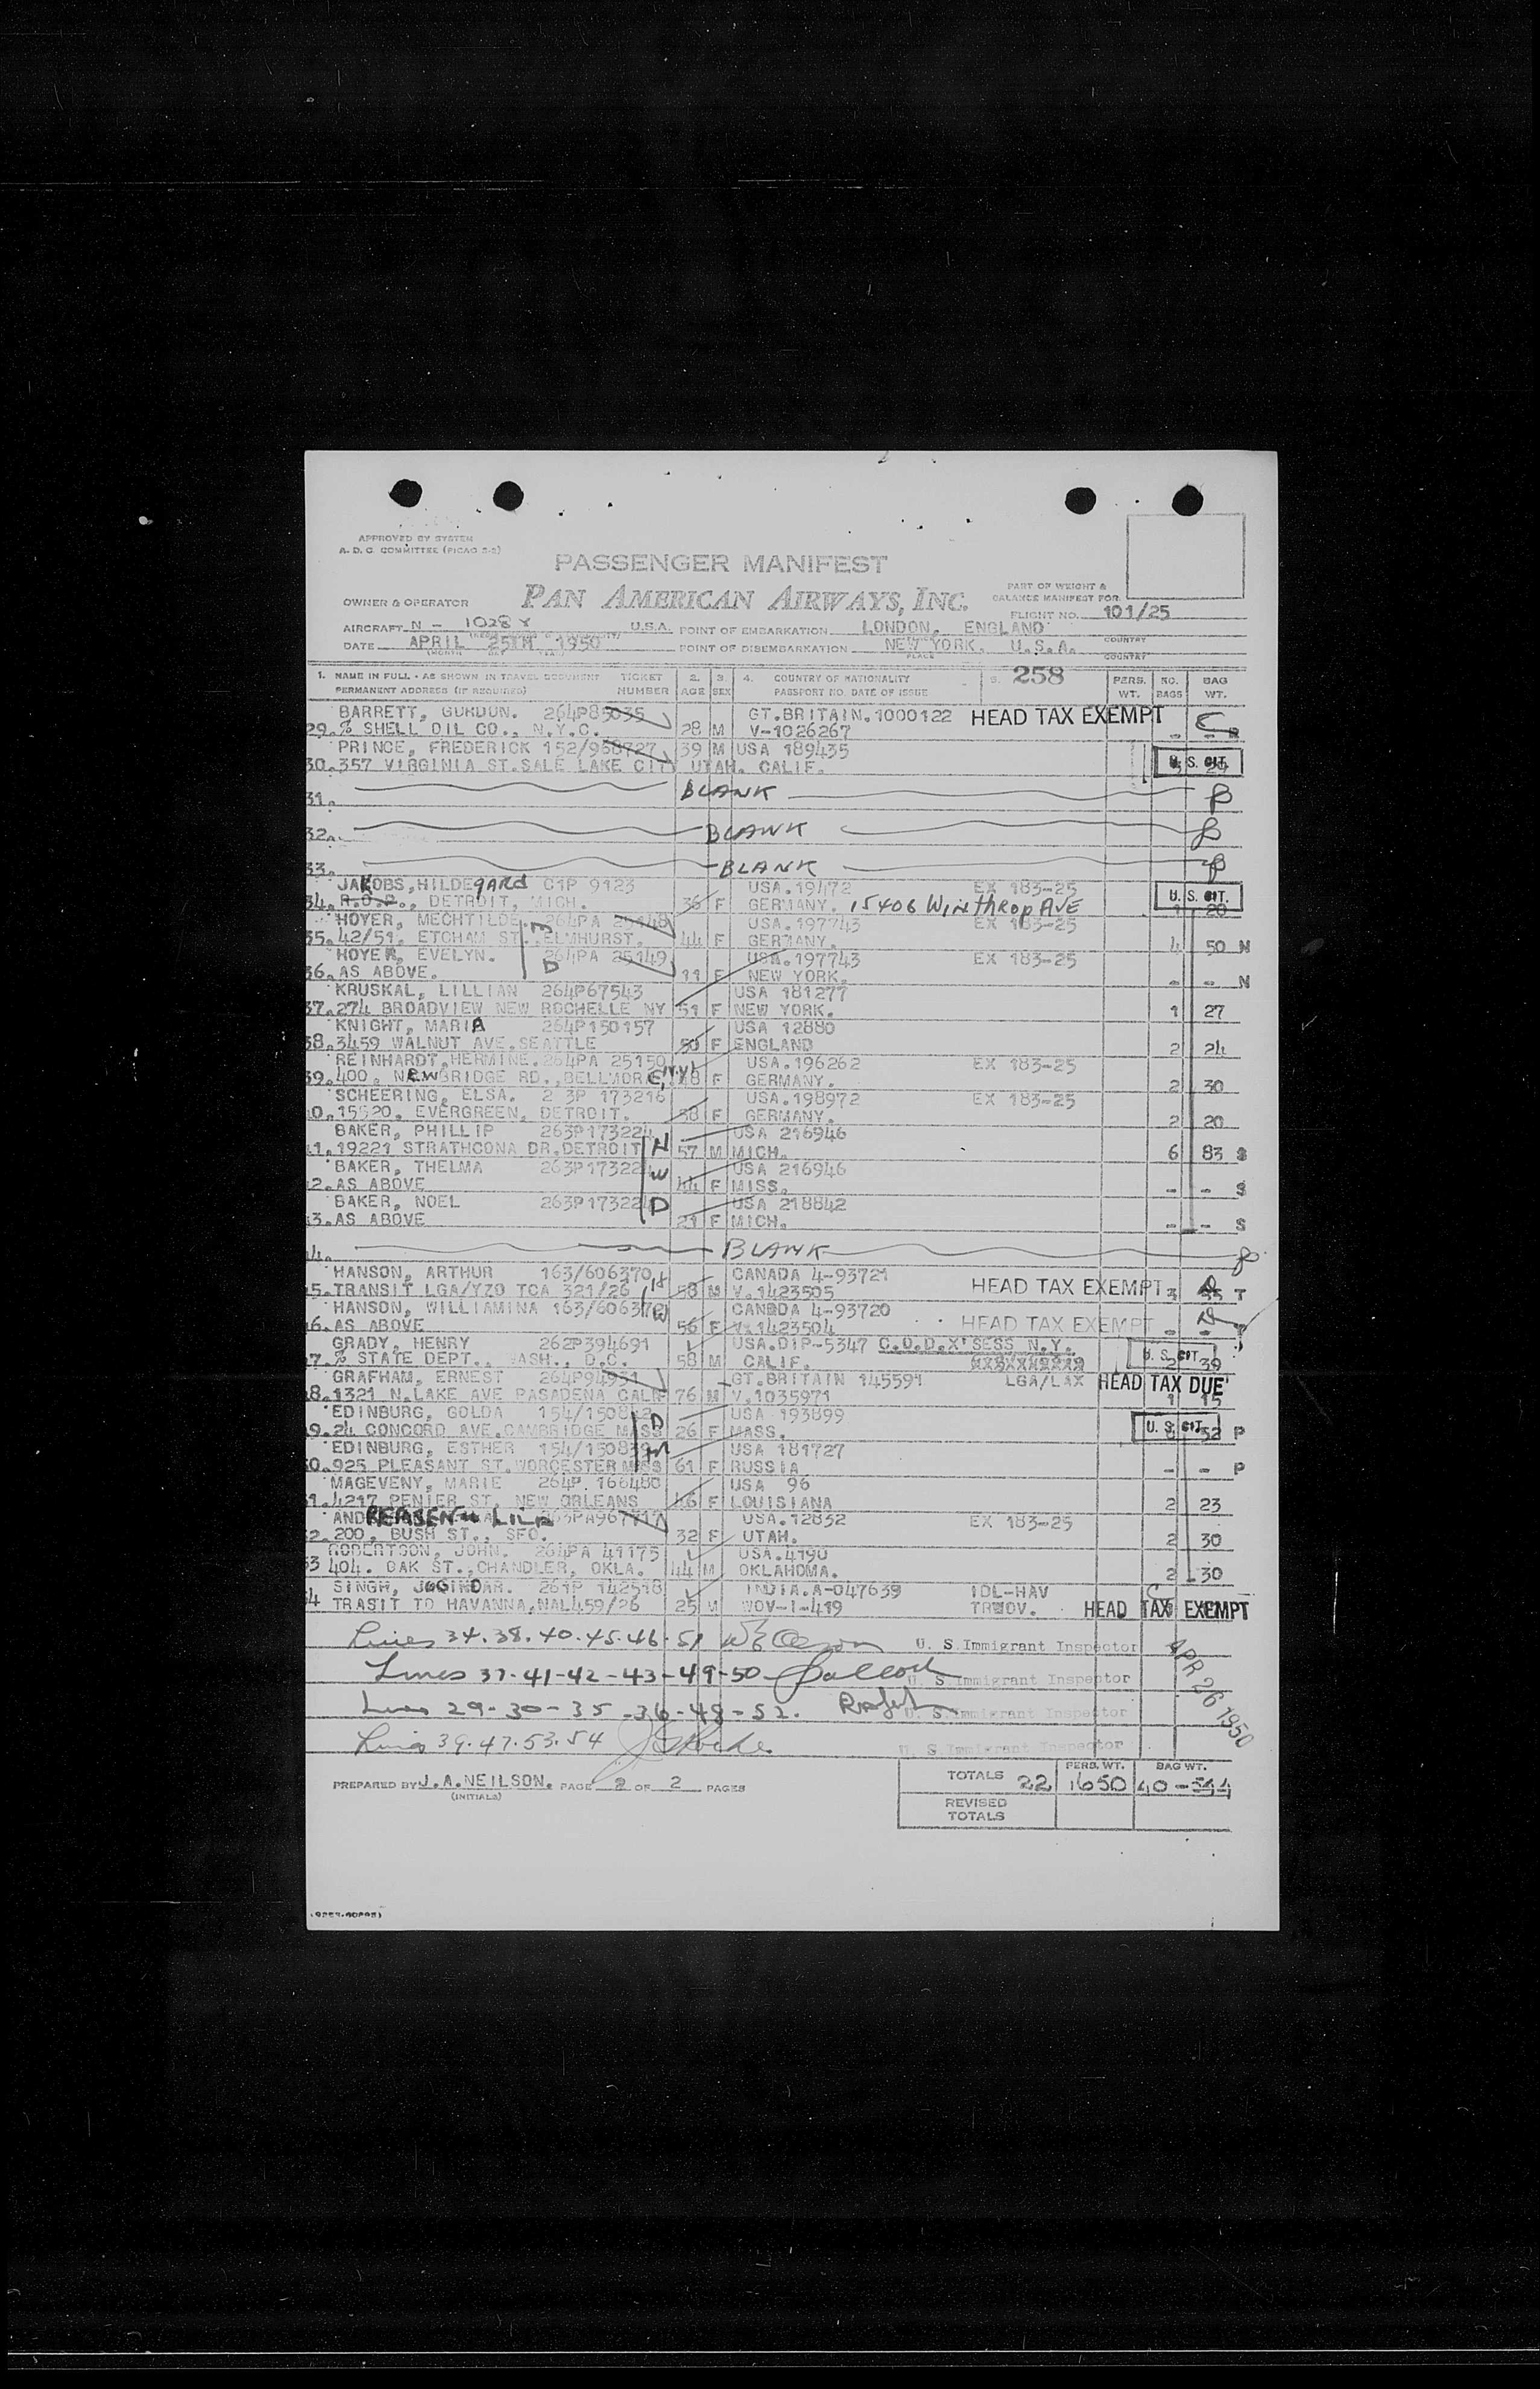 APPROVED BY SYSTEM
A. D. C. COMMITTEE (PICAO 2-2)
PASSENGER MANIFEST
PAN AMERICAN AIRWAYS, INC.
PART OF WEIGHT &
BALANCE MANIFEST FOR
OWNER & OPERATOR
FLIGHT NO. 101/25
AIRCRAFT N - 1028 U.S.A. POINT OF EMBARKATION LONDON, ENGLAND
COUNTRY
DATE APRIL 25TH 1950 POINT OF DISEMBARKATION NEW YORK, U.S.A.
(MONTH PLACE COUNTRY
1. NAME IN FULL - AS SHOWN IN TRAVEL DOCUMENT TICKET 2. 3. 4. COUNTRY OF NATIONALITY 5. 258 PERS. NO. BAG
PERMANENT ADDRESS (IF REQUIRED) NUMBER AGE SEX PASSPORT NO. DATE OF ISSUE WT. BAGS WT.
BARRETT, GORDON. 264P85035 GT.BRITAIN.1000122 HEAD TAX EXEMPT
29. % SHELL OIL CO., N.Y.C. 28 M V-1026267 - -
PRINCE, FREDERICK 152/968727 39 M USA 189435
30. 357 VIRGINIA ST.SALE LAKE CITY UTAH. CALIF. U. S. CIT.
31. BLANK
32. BLANK
33. BLANK
JAKOBS, HILDEGARD C1P 9123 USA.19472 EX 183-25
34. R.O.P., DETROIT, MICH. 36 F GERMANY. 15406 WINTHROP AVE U. S. CIT. 1 20
HOYER, MECHTILDE. 264PA 25148 USA.197743 EX 183-25
35. 42/51. ETCHAM ST. ELMHURST. 44 F GERMANY. 4 50 N
HOYER, EVELYN. D 264PA 25149 USA.197743 EX 183-25
36. AS ABOVE. 11 F NEW YORK. - - N
KRUSKAL, LILLIAN 264P67543 USA 181277
37. 274 BROADVIEW NEW ROCHELLE NY 51 F NEW YORK. 1 27
KNIGHT, MARIA 264P150157 USA 12880
38. 3459 WALNUT AVE.SEATTLE 50 F ENGLAND 2 24
REINHARDT, HERMINE. 264PA 25150 USA.196262 EX 183-25
39. 400. NEWBRIDGE RD., BELLMORE, N.Y. 48 F GERMANY. 2 30
SCHEERING, ELSA. 2 3P 173216 USA.198972 EX 183-25
0. 15520. EVERGREEN, DETROIT. 58 F GERMANY. 2 20
BAKER, PHILLIP 263P173224 H USA 216946
1. 19221 STRATHCONA DR.DETROIT 57 M MICH. 6 83 S
BAKER, THELMA 263P17322 W USA 216946
2. AS ABOVE 44 F MISS. - - S
BAKER, NOEL 263P173224 D USA 218842
3. AS ABOVE 21 F MICH. - - S
4. BLANK
HANSON, ARTHUR 163/606370 H CANADA 4-93721
5. TRANSIT LGA/YZO TCA 321/26 58 M V.1423505 HEAD TAX EXEMPT 3 35 T
HANSON, WILLIAMINA 163/606370 W CANADA 4-93720
6. AS ABOVE 56 F V.1423504 HEAD TAX EXEMPT -
GRADY, HENRY 262P394691 USA.DIP-5347 C.O.D.X'SESS N.Y.
7. % STATE DEPT., WASH., D.C. 58 M CALIF. U. S. CIT. 2 39
GRAFHAM, ERNEST 264P94931 GT.BRITAIN 145591 LGA/LAX HEAD TAX DUE
8. 1321 N.LAKE AVE PASADENA CALIF 76 M V.1035971 1 15
EDINBURG, GOLDA 154/1508 D USA 193899
9. 24 CONCORD AVE.CAMBRIDGE MASS 26 F MASS. U. S. CIT. 52 P
EDINBURG, ESTHER 154/150839 M USA 181727
0. 925 PLEASANT ST.WORCESTER MASS 61 F RUSSIA - - P
MAGEVENY, MARIE 264P. 166480 USA 96
1. 4217 PENIER ST. NEW ORLEANS 46 F LOUISIANA 2 23
ANDREASEN LILA 263PA967717 USA.12852 EX 183-25
2. 200. BUSH ST., SFO. 32 F UTAH. 2 30
ROBERTSON, JOHN. 264PA 41175 USA.4190
3 404. OAK ST., CHANDLER, OKLA. 44 M OKLAHOMA. 2 30
SINGH, JOGINDAR. 261P 142518 INDIA.A-047639 IDL-HAV
4 TRASIT TO HAVANNA,NAL459/26 25 M WOV-1-419 TRWOV. HEAD TAX EXEMPT
Lines 34.38.40.45.46.51 U. S Immigrant Inspector
Lines 37-41-42-43-49-50 U. S Immigrant Inspector
Lines 29-30-35-36-48-52. U. S. Immigrant Inspector
Lines 39.47.53.54 U. S Immigrant Inspector
APR 26 1950
PREPARED BY J.A.NEILSON. PAGE 2 OF 2 PAGES
(INITIALS)
PERS. WT. BAG WT.
TOTALS 22 1650 40 - 544
REVISED
TOTALS